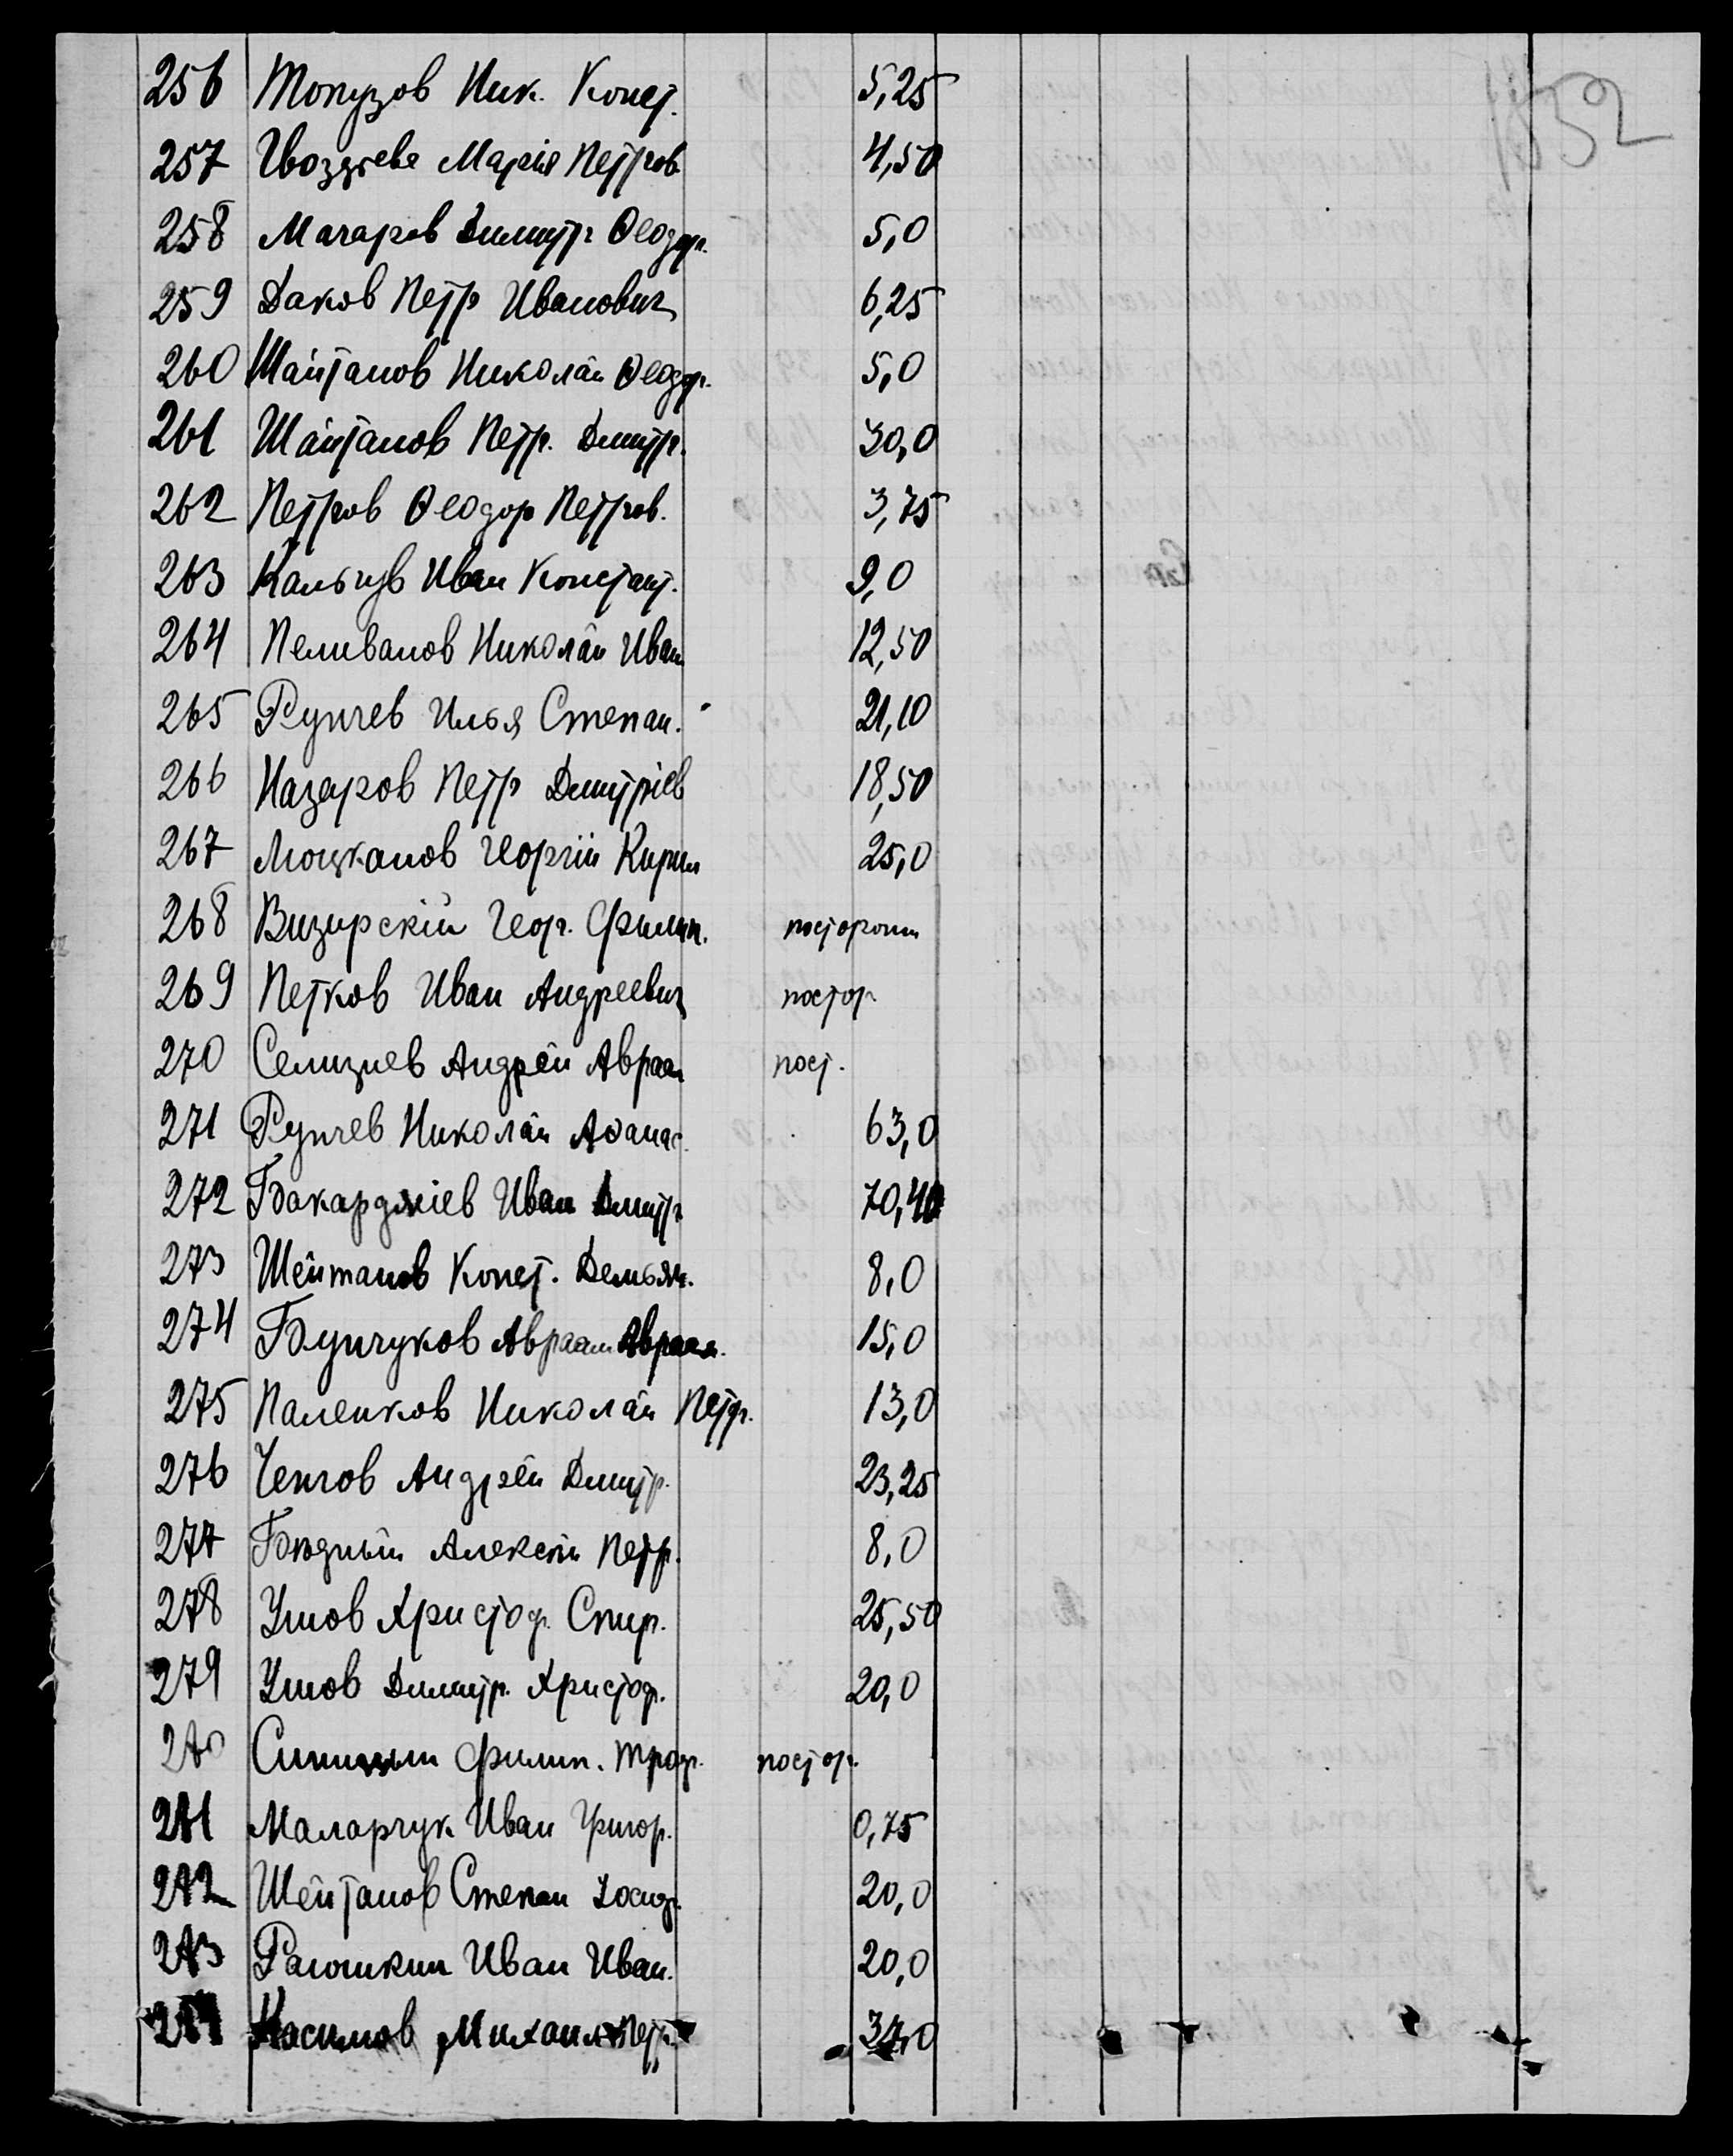 52
256 Топузов Ник. Конст. 5,25
257 Гвоздева Марія Петров. 4,50
258 Мачаров Димитр Ѳеодор. 5,0
259 Даков Петр Иванович 6,25
260 Шайтанов Николай Ѳеодр. 5,0
261 Шайтанов Петр. Дмитр. 30,0
262 Петров Ѳеодор Петров. 3,75
263 Кальчев Иван Констант. 9,0
264 Пеливанов Николай Иван 12,50
265 Рупчев Илья Степан. 21,10
266 Назаров Петр Дмитріев 18,50
267 Моцканов Георгій Кирил 25,0
268 Визирскій Геор. Филип. посторонн
269 Петков Иван Андреевич постор
270 Андрей Авраам пост.
271 Рупчев Николай Аѳанас. 63,0
272 Бакарджіев Иван Дмитр 70,40
273 Шейтанов Конст. Демьян. 8,0
274 Бунчуков Авраам Авраам. 15,0
275 Паленков Николай Петр. 13,0
276 Ченгов Андрей Дмитр. 23,25
277 Бѣдный Алексѣй Петр. 8,0
278 Узнов Христоф. Спир. 25,50
279 Узнов Димитр. Христоф. 20,0
280 Филип. Троф. постор.
281 Маларчук Иван Григор. 0,75
282 Шейтанов Степан 20,0
283 Рагошкин Иван Иван. 20,0
284 Касимов Михаил Петр. 34,0